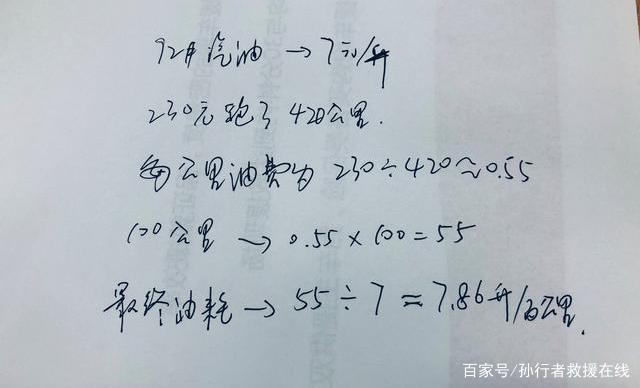 92# 汽油 → 7元/升
230元跑了 420公里.
每公里油费为 230÷420≈0.55
100公里 → 0.55×100=55
最终油耗 → 55÷7≈7.86升/百公里.
百家号/孙行者救援在线